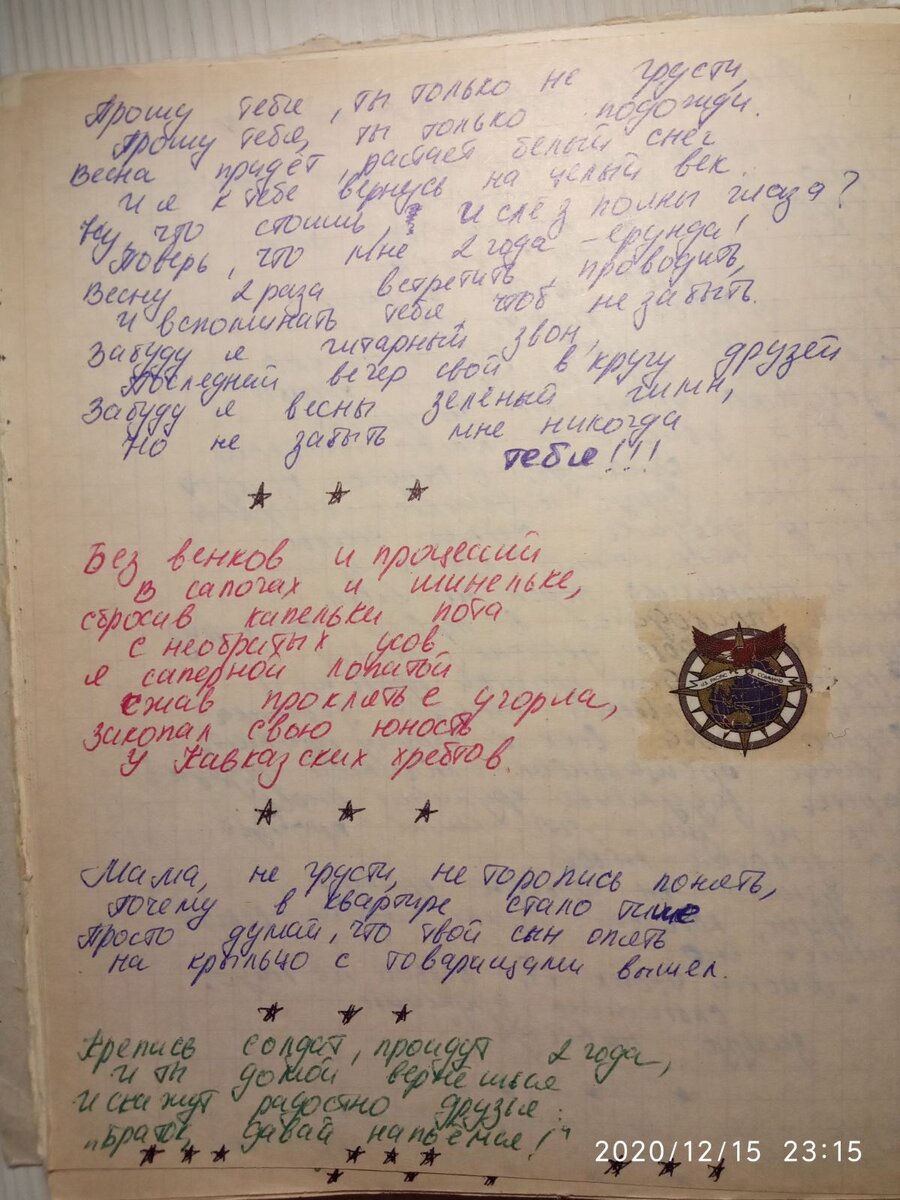 Прошу тебя, ты только не грусти,
Прошу тебя, ты только подожди.
Весна придёт, растает белый снег
И я к тебе вернусь на целый век.
Ну, что стоишь, и слёз полны глаза?
Поверь, что мне 2 года - ерунда!
Весну 2 раза встретить, проводить,
И вспоминать тебя, чтоб не забыть.
Забуду я гитарный звон,
Последний вечер свой в кругу друзей
Забуду я весны зелёный гимн,
Но не забыть мне никогда
тебя!!!
Без венков и процессий
В сапогах и шинельке,
сбросив капельки пота
с небритых усов
я саперной лопатой
сжав проклятье у горла,
закопал свою юность
У Кавказских хребтов.
U.S. PACIFIC COMMAND
Мама, не грусти, не торопись понять,
Почему в квартире стало тише
Просто думай, что твой сын опять
на крыльцо с товарищами вышел.
Крепись солдат, пройдут 2 года,
И ты домой вернёшься
И скажут радостно друзья:
"Браток, давай напьёмся!"
2020/12/15 23:15